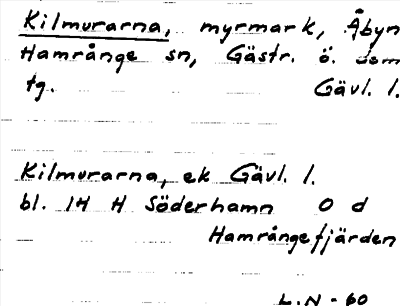 Kilmurarna, myrmark, Åbyn
Hamrånge sn, Gästr. ö. dom
tg. Gävl. l.
Kilmurarna, ek Gävl. l.
bl. 14 H Söderhamn 0 d
Hamrångefjärden
L.N - 60